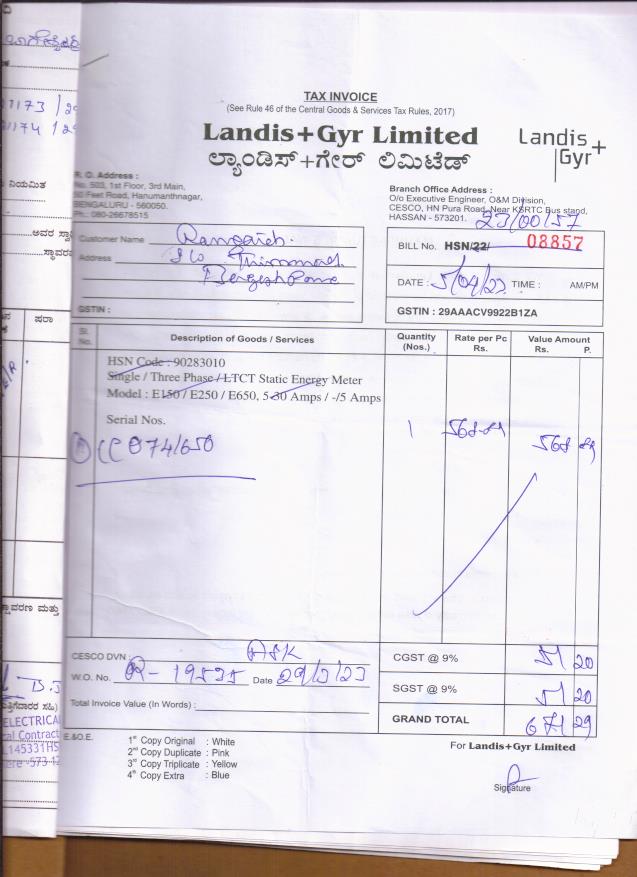 TAX INVOICE
(See Rule 46 of the Central Goods & Services Tax Rules, 2017)
Landis+Gyr Limited
ಲ್ಯಾಂಡಿಸ್+ಗೇರ್ ಲಿಮಿಟೆಡ್
Landis+
Gyr
R. O. Address :
No. 503, 1st Floor, 3rd Main,
50 Feet Road, Hanumanthnagar,
BENGALURU - 560050.
Ph.: 080-26678515
Branch Office Address :
O/o Executive Engineer, O&M Division,
CESCO, HN Pura Road, Near KSRTC Bus stand,
HASSAN - 573201.
23/00157
Customer Name
Address
GSTIN :
BILL No. HSN/22/ 08857
DATE : 5/04/23 TIME : AM/PM
GSTIN : 29AAACV9922B1ZA
Sl. No. Description of Goods / Services Quantity (Nos.) Rate per Pc Rs. Value Amount Rs. P.
HSN Code : 90283010
Single / Three Phase / LTCT Static Energy Meter
Model : E150 / E250 / E650, 5-30 Amps / -/5 Amps
Serial Nos.
1 568-89 568 89
0741650
CESCO DVN : ASK
W.O. No. R-19525 Date 29/3/23
Total Invoice Value (In Words) :
CGST @ 9% 51 20
SGST @ 9% 51 20
GRAND TOTAL 671 29
E.&O.E.
1st Copy Original : White
2nd Copy Duplicate : Pink
3rd Copy Triplicate : Yellow
4th Copy Extra : Blue
For Landis+Gyr Limited
Signature
1173
1174
ನಿಯಮಿತ
ಪರಾ
ELECTRICAL
cal Contract
L145331HS